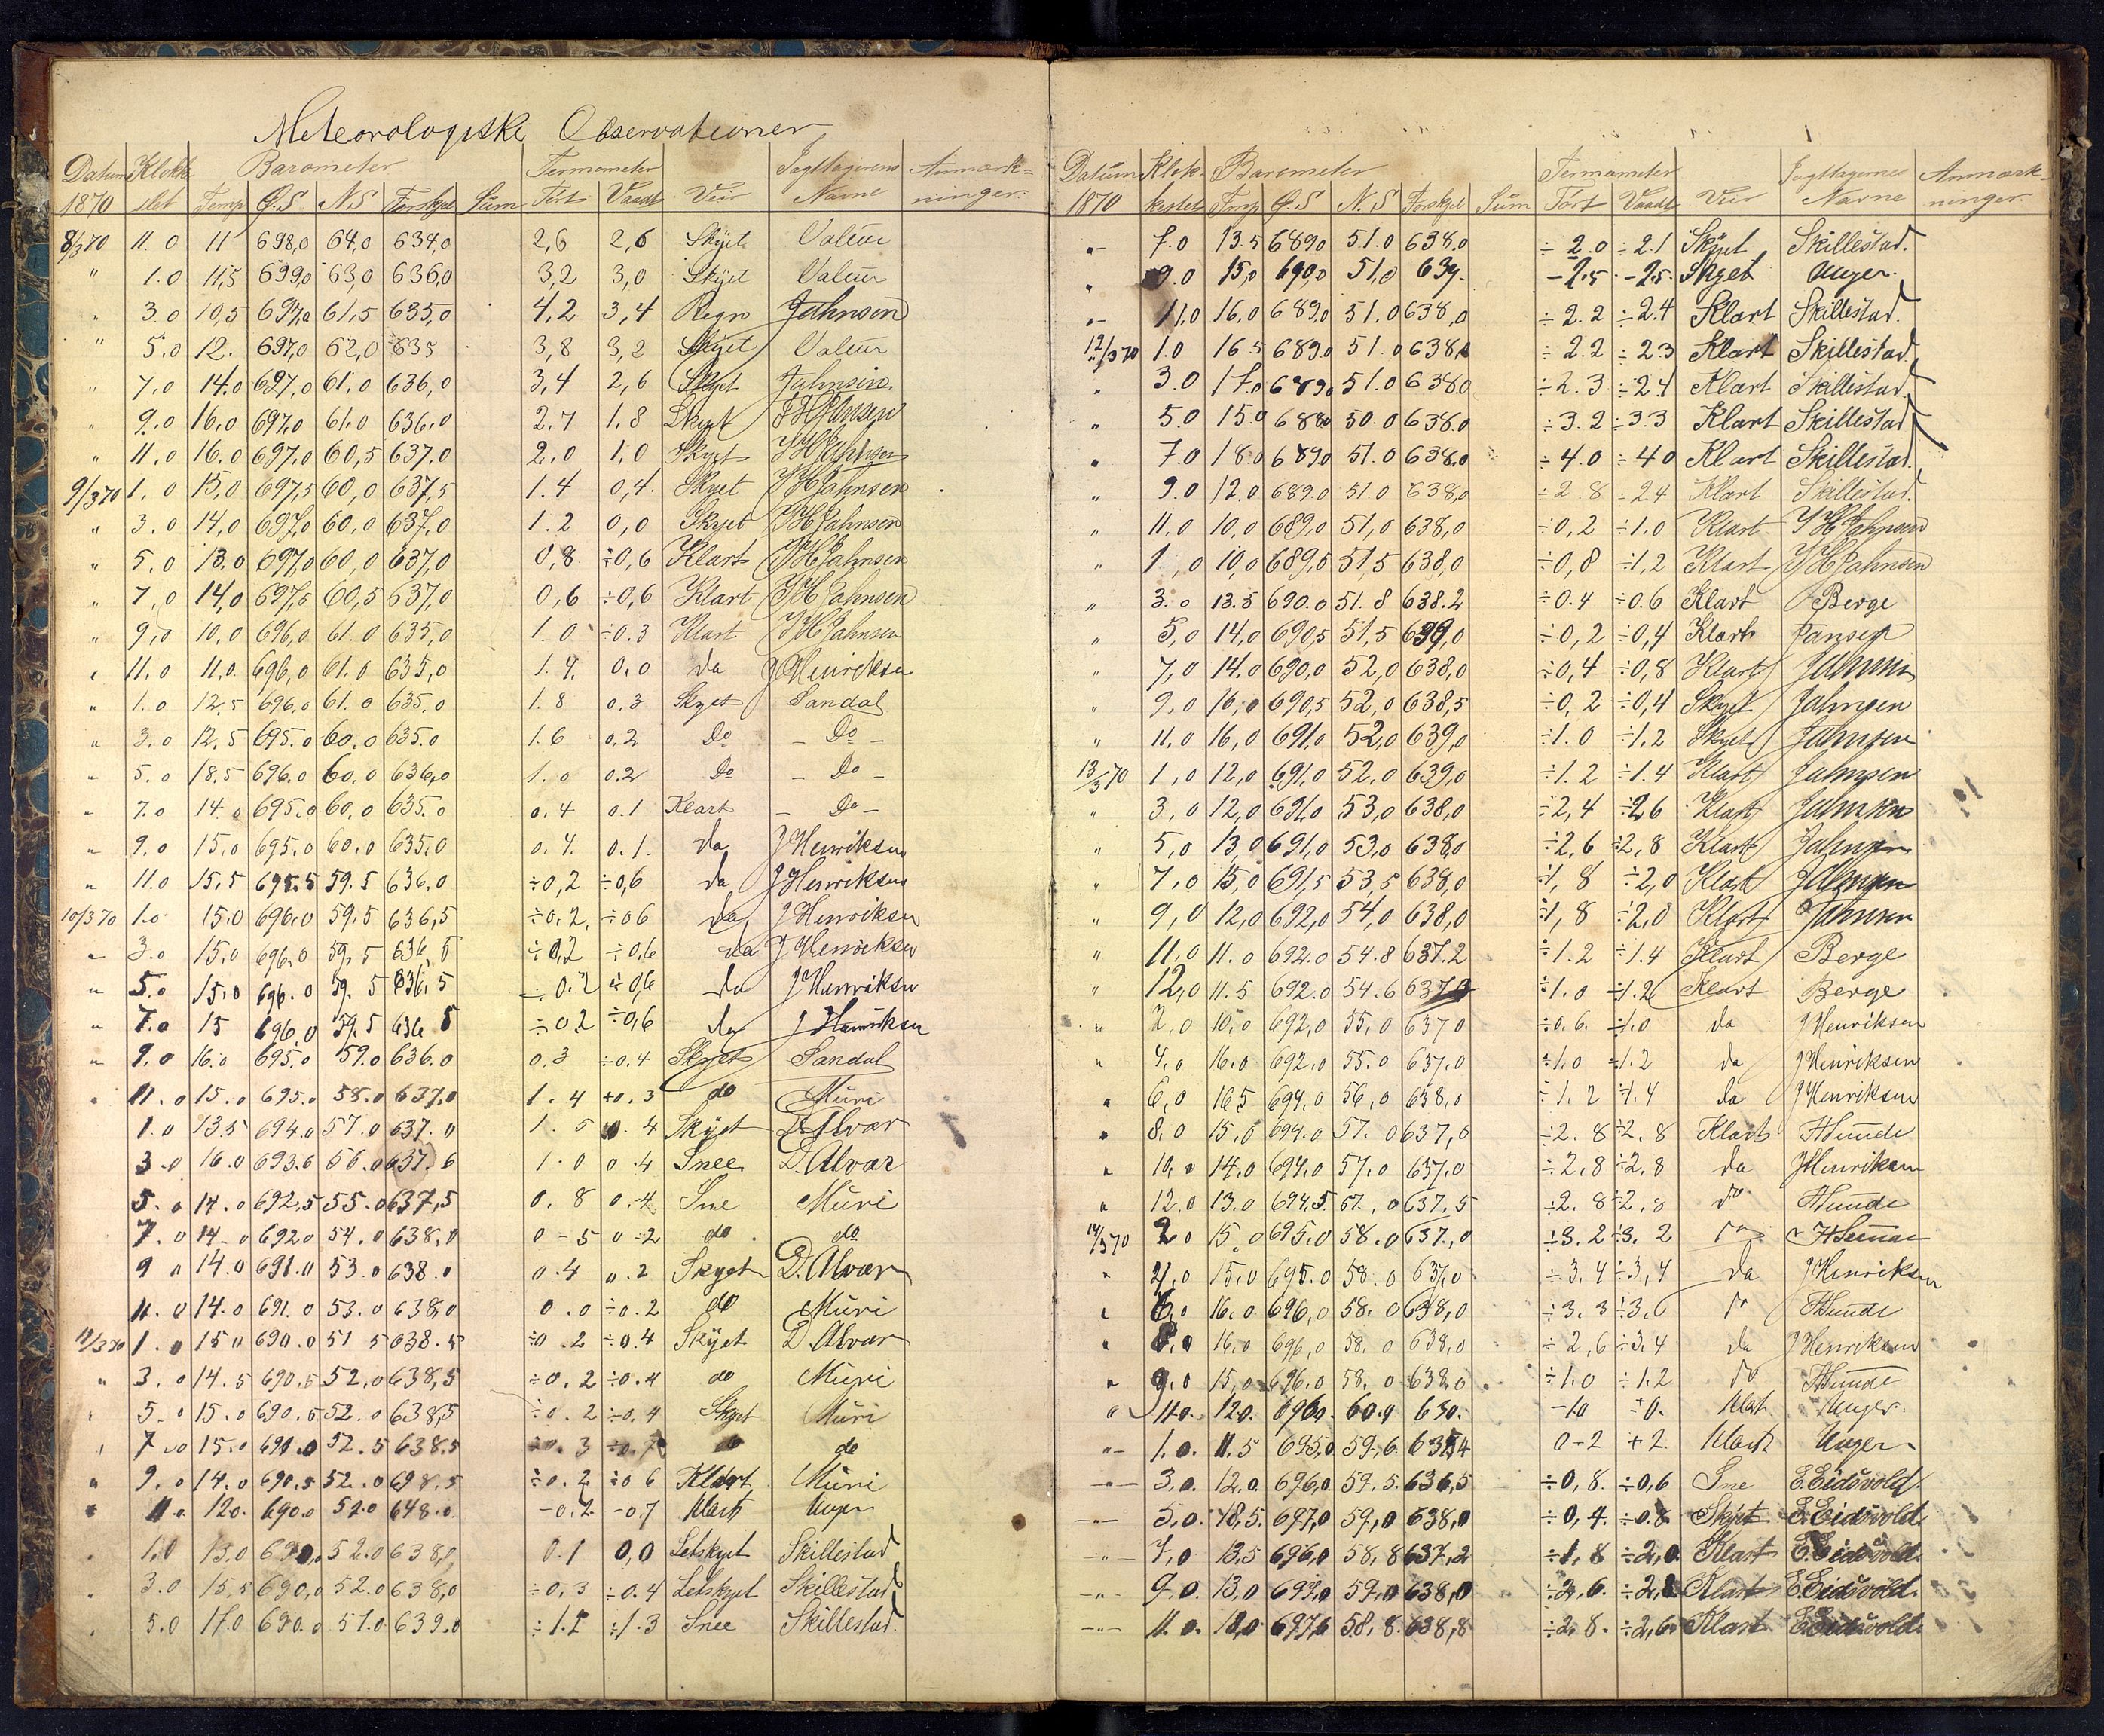 Meteorologiske Observationer
Datum Klokke Barometer Termometer Jagttagerens Anmærk=
1870 slet Temp Ø.S N.S Forskjel Sum Tört Vaadt Veir Navne ninger.
8/3 70 11.0 11 698,0 64,0 634,0 2,6 2,6 Skÿet Valeur
" 1.0 11,5 699,0 63,0 636,0 3,2 3,0 Skÿet Valeur
" 3.0 10,5 697,0 61,5 635,0 4,2 3,4 Regn Jahnsen
" 5.0 12. 697,0 62,0 635 3,8 3,2 Skÿet Valeur
" 7.0 14.0 697,0 61.0 636,0 3,4 2,6 Skyet Jahnsen
" 9.0 16,0 697,0 61.0 636,0 2.7 1.8 Skyet
" 11.0 16.0 697.0 60,5 637.0 2.0 1,0 Skyet
9/3 70 1.0 15,0 697,5 60,0 637,5 1.4 0,4. Skyet JHJahnsen
" 3.0 14,0 697,0 60,0 637,0 1.2 0,0 Skyet JHJahnsen
" 5,0 13.0 697,0 60,0 637,0 0,8 ÷0,6 Klart JHJahnsen
" 7,0 14,0 697,5 60,5 637,0 0,6 ÷0,6 Klart JHJahnsen
" 9,0 10,0 696,0 61.0 635,0 1.0 ÷0.3 Klart JHJahnsen
" 11.0 11,0 696,0 61.0 635,0 1.4. 0.0 da JHenriksen
" 1.0 12.5 696.0 61.0 635.0 1.8 0.3 Skyet Sandal
" 3.0 12.5 695.0 60.0 635.0 1.6 0.2 Do – Do –
" 5.0 18.5 696.0 60.0 636,0 1.0 0.2 Do – Do –
" 7.0 14.0 695.0 60,0 635.0 0.4 0.1 Klart – Do –
" 9.0 15,0 695.0 60.0 635,0 0.4. 0.1. da JHenriksen
" 11.0 15,5 695.5 59.5 636,0 ÷0,2 ÷0,6 da JHenriksen
10/3 70 1.0 15.0 696.0 59.5 636,5 ÷0.2. ÷06 da JHenriksen
" 3.0 15,0 696.0 59,5 636,5 ÷0,2 ÷0,6 da JHenriksen
" 5.0 15,0 696.0 59.5 636,5 ÷0.2 ÷0,6 da JHenriksen
" 7.0 15 696,0 59.5 636 5 ÷02 ÷0,6 da JHenriksen
" 9.0 16.0 695.0 59.0 636.0 0.3 ÷0.4 Skyet Sandal
" 11.0 15.0 695.0 58.0 637,0 1.4 +0.3 do Muri
1.0 13.5 694.0 57.0 637.0 1.5 0.4 Skÿet D.Alvær
3.0 16.0 693.6 56.0 637.6 1.0 0.4 Snee D.Alvær
5.0 14.0 692,5 55.0 637,5 0.8 0.4 Sne Muri
7.0 14.0 692.0 54.0 638,0 0-5 0-2 do do
9 0 14.0 691.0 53.0 638.0 0.4 0.2 Skyet D.Alvær
11.0 14.0 691.0 53.0 638,0 0.0 ÷0.2 do Muri
11/3 70 1.0 15 0 690.0 51 5 638.5 ÷0.2 ÷0.4 Skÿet D Alvær
" 3.0 14.5 690.5 52.0 638,5 ÷0.2 ÷0.4 do Muri
" 5.0 15.0 690.5 52.0 638,5 ÷0.2 ÷0.4 Skyet Muri
" 7.0 15.0 691.0 52.5 638.5 ÷0.3 ÷0.7 do do
" 9.0 14.0 690.5 52.0 698,5 ÷0.2 ÷06 Klart Muri
" 11.0 120. 690.0 52.0 648.0 -0.2 -07 Klart Unger
" 1.0 13.0 690,0 52.0 638,0 0.1 0,0 Letskyet Skillestad
" 3.0 15.5 690,0 52.0 638,0 ÷0.3 ÷0.4 Letskyet Skillestad
" 5.0 17.0 690.0 51.0 639.0 ÷1.1 ÷1.3 Snee Skillestad
Datum Klok- Barometer Termometer Jagttagerne Anmærk-
1870 keslet Tmp Ø.S N.S Forskjel Sum Tört Vaadt Veir Navne ninger.
"- 7.0 13.5 6890 51.0 638,0 ÷2.0 ÷2.1 Skÿet Skillestad.
" 9.0 15,0 690,0 51,0 639. -2.5 -2.5. Skyet Unger.
"- 11.0 16,0 689,0 51.0 638,0 ÷2.2 ÷2.4 Klart Skillestad.
12/3 70 1.0 16.5 689.0 51.0 638,0 ÷2.2 ÷2.3 Klart Skillestad.
" 3.0 17.0 689,0 51.0 6380 ÷2.3 ÷2.4 Klart Skillestad.
" 5.0 15.0 6880 50.0 638.0 ÷3.2 ÷3.3 Klart Skillestad
" 7.0 18.0 6890 51.0 638,0 ÷4.0 ÷40 Klart Skillestad.
" 9.0 12.0 689.0 51.0 638,0 ÷2.8 ÷2.4 Klart Skillestad.
" 11.0 10,0 689,0 51,0 638,0 ÷0,2 ÷1.0 Klart JHJahnsen
" 1,0 10,0 689,5 51,5 638,0 ÷0,8 ÷1,2 Klart JHJahnsen
" 3.0 13.5 690.0 51.8 638.2 ÷0.4 ÷0.6 Klart Berge
" 5,0 14,0 690,5 51,5 639,0 ÷0,2 ÷0,4 Klart Jansen
" 7,0 14.0 690,0 52,0 638,0 ÷0,4 ÷0,8 Klart Jahnsen
" 9,0 16,0 690,5 52,0 638,5 ÷0,2 ÷0,4 Skyet Jahnsen
" 11.0 16,0 691,0 52,0 639,0 ÷1.0 ÷1,2 Skyet Jahnsen
13/3 70 1,0 12,0 691,0 52,0 639,0 ÷1.2 ÷1.4 Klart Jahnsen
" 3,0 12,0 691,0 53,0 638,0 ÷2,4 ÷26 Klart Jahnsen
" 5,0 13,0 691,0 53,0 638,0 ÷2,6 ÷2,8 Klart Jahnsen
" 7,0 15,0 691,5 53,5 638,0 ÷1,8 ÷2,0 Klart Jahnsen
" 9,0 12,0 692,0 54,0 638,0 ÷1,8 ÷2,0 Klart Jahnsen
" 11,0 11.0 692.0 54.8 637.2 ÷1.2 ÷1.4 Klart Berge
" 12,0 11.5 692.0 54.6 ÷1.0 ÷1.2 Klart Berge
" 2,0 10,0 692,0 55,0 6370 ÷0.6. ÷1.0 da JHenriksen
" 4.0 16.0 692.0 55.0 637.0 ÷1.0 ÷1.2 da JHenriksen
" 6,0 165 694,0 56,0 638,0 ÷1.2 ÷1.4 da JHenriksen
" 8,0 15,0 694.0 57.0 637,0 ÷2.8 ÷2.8 Klart HSunde
" 10,0 14.0 694.0 57.0 637.0 ÷2,8 ÷2,8 da JHenriksen
" 12,0 13.0 694,5. 57.,0 637.5 ÷2.8 ÷2,8 do HSunde
14/3 70 2 0 15,0 695.0 58.0 637.,0 ÷3.2 ÷3.2 do HSunde
" 4,0 15.0 695.0 58.0 637,0 ÷3,4 ÷3,4 da JHenriksen
" 6,0 16.0 696,0 58.0 638,0 ÷3.3 ÷3.6 do HSunde
" 8,0 16.0 696,0 58.0 638,0 ÷2,6 ÷3,4 da JHenriksen
" 9,0 15,0 696.0 58.0 638,0 ÷1.0 ÷1.2 do HSunde
" 11.0. 120. 696,0. 60.0 630. -10 ÷0. Klart Unger.
"- 1.0. 11.5 695,0 59,6. 0-2 +2. Klart Unger.
-"- 3,0. 12.0. 696,0 59.5. 636,5 ÷0,8. ÷0,6 Sne E.Eidsvold.
-"- 5,0. 18,5. 697,0 59,0 638,0 ÷0,4. ÷0.8 Skÿet E.Eidsvold.
-"- 7,0 13.5 696,0 58,8 637,2 ÷1,8 ÷2,0. Klart E.Eidsvold.
-"- 9.0. 13,0 697,0 59,0 638,0 ÷2,6. Klart E.Eidsvold.
-"- 11.0. 12,0 58,8. 638,8 ÷2,8. ÷2,6. Klart E.Eidsvold.